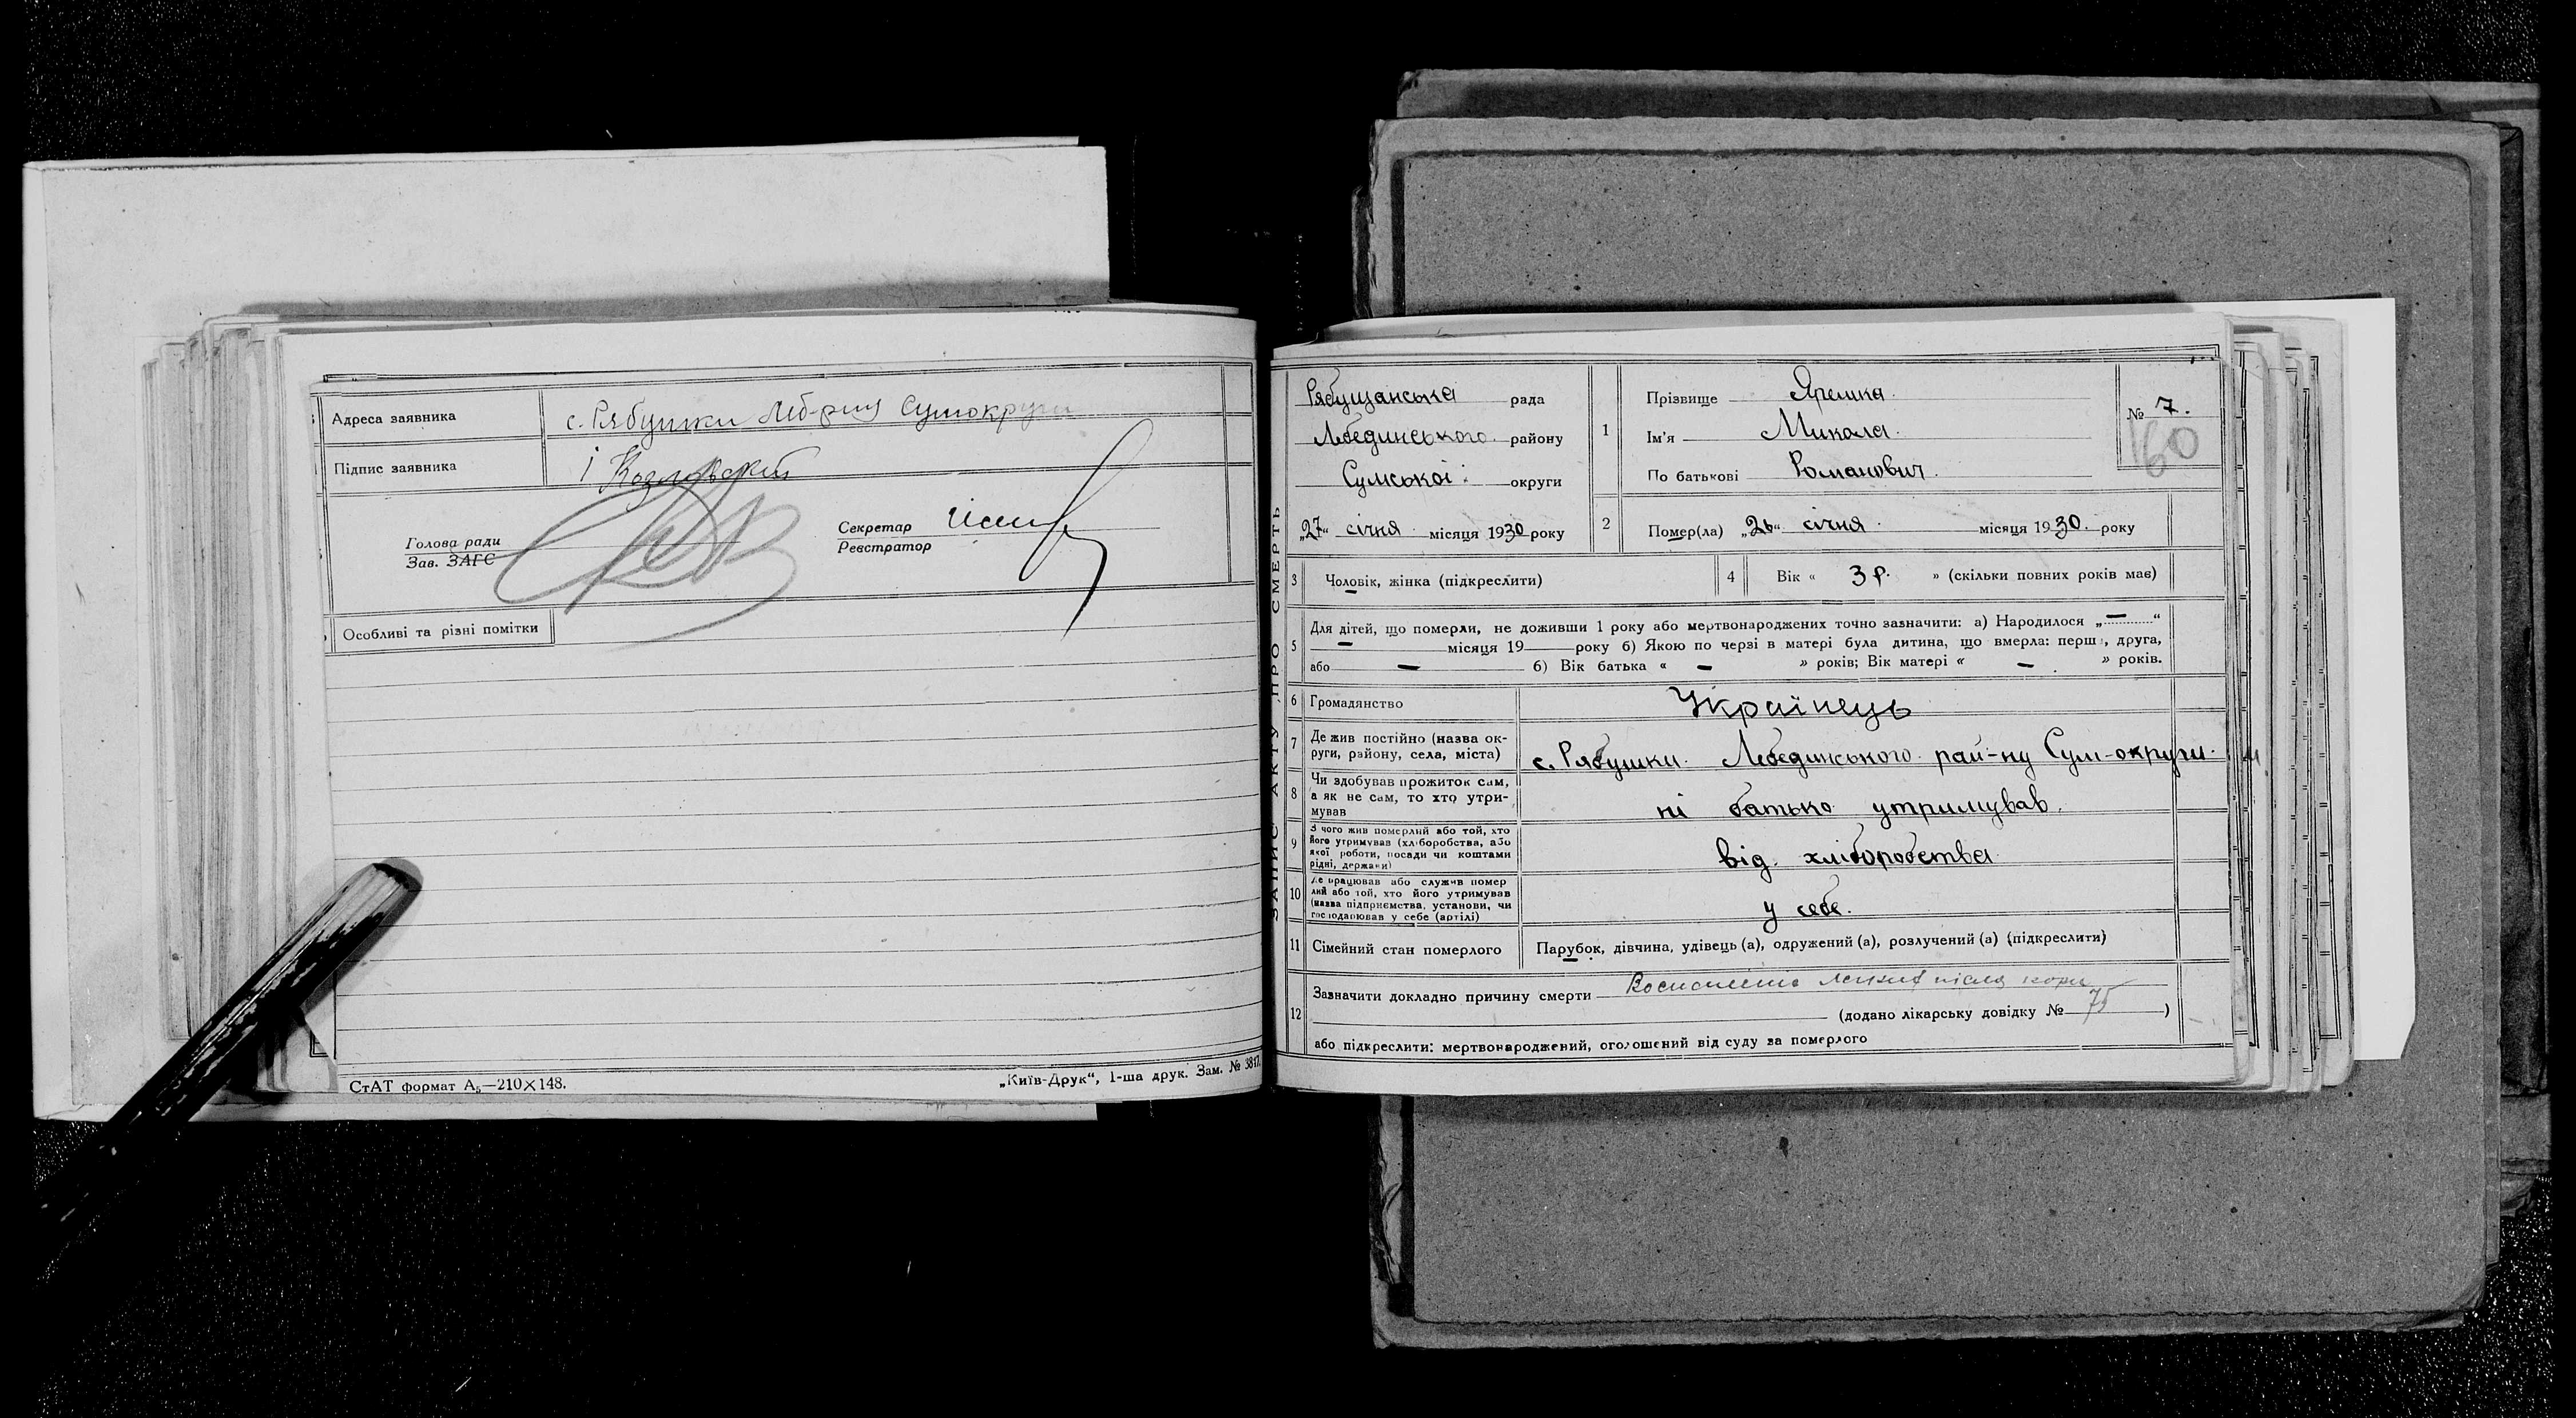 Адреса заявника с. Рябушки Леб-рну Сумокруги
Підпис заявника Козловский
Голова ради
Зав. ЗАГС
Секретар
Реєстратор
Особливі та різні помітки
СтАТ формат А₅—210×148.
„Київ-Друк“, 1-ша друк. Зам. № 3817.
ЗАПИС АКТУ ПРО СМЕРТЬ
Рябущанська рада
Лебединського району
Сумської округи
„27“ січня місяця 1930 року
1 Прізвище Ярешка
Ім'я Микола
По батькові Романович
№ 7.
60
2 Помер(ла) „26“ січня місяця 1930. року
3 Чоловік, жінка (підкреслити)
4 Вік « 3 р. » (скільки повних років має)
5 Для дітей, що померли, не доживши 1 року або мертвонароджених точно зазначити: а) Народилося „—“
— місяця 19 року б) Якою по черзі в матері була дитина, що вмерла: перша, друга,
або — б) Вік батька « — » років; Вік матері « — » років.
6 Громадянство Українець
7 Де жив постійно (назва округи, району, села, міста) с. Рябушки Лебединського рай-ну Сум-округи
8 Чи здобував прожиток сам, а як не сам, то хто утримував ні батько утримував.
9 З чого жив померлий або той, хто його утримував (хліборобства, або якої роботи, посади чи коштами рідні, держави) від хліборобства
10 Де працював або служив померлий або той, хто його утримував (назва підприємства, установи, чи господарював у себе (артілі) у себе.
11 Сімейний стан померлого Парубок, дівчина, удівець (а), одружений (а), розлучений (а) (підкреслити)
12 Зазначити докладно причину смерти після кори
(додано лікарську довідку № 75)
або підкреслити: мертвонароджений, оголошений від суду за померлого